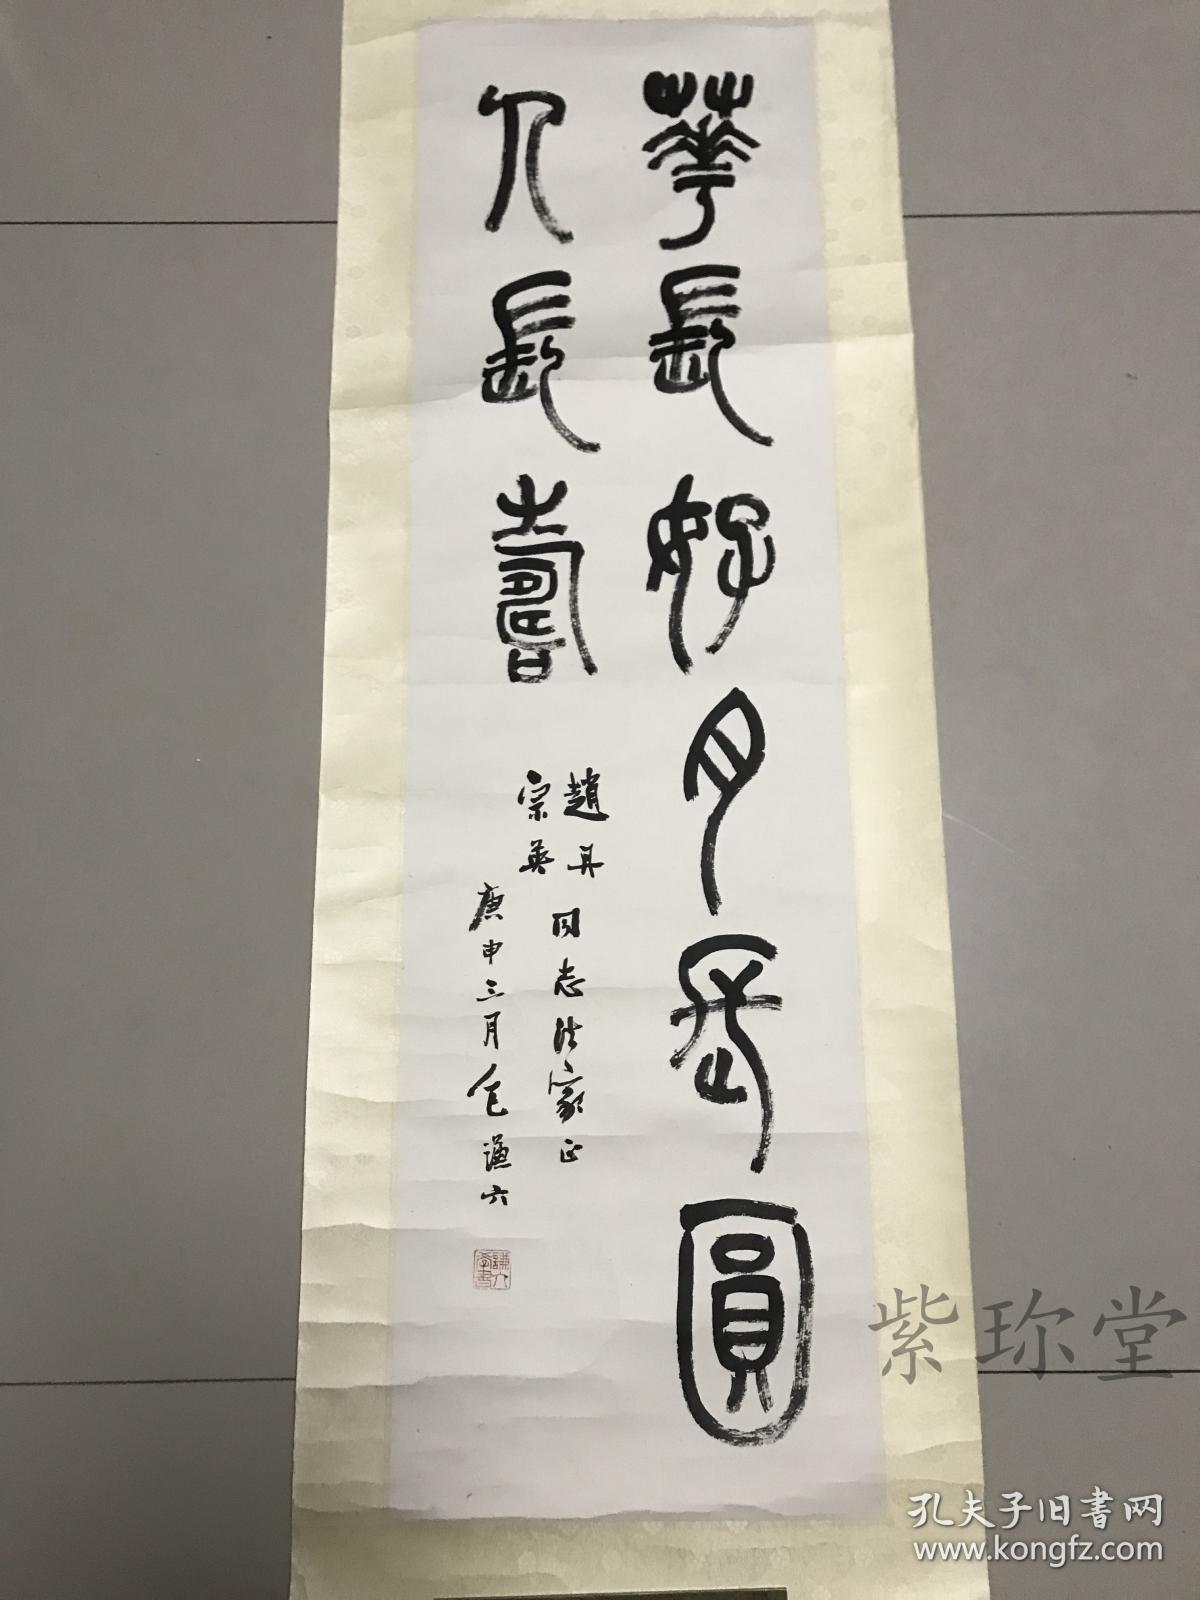 華長好月長圓
人長壽
趙丹
宗英
同志法家正
庚申三月仓谦六
謙六
學書
紫珎堂
孔夫子旧書网
www.kongfz.com